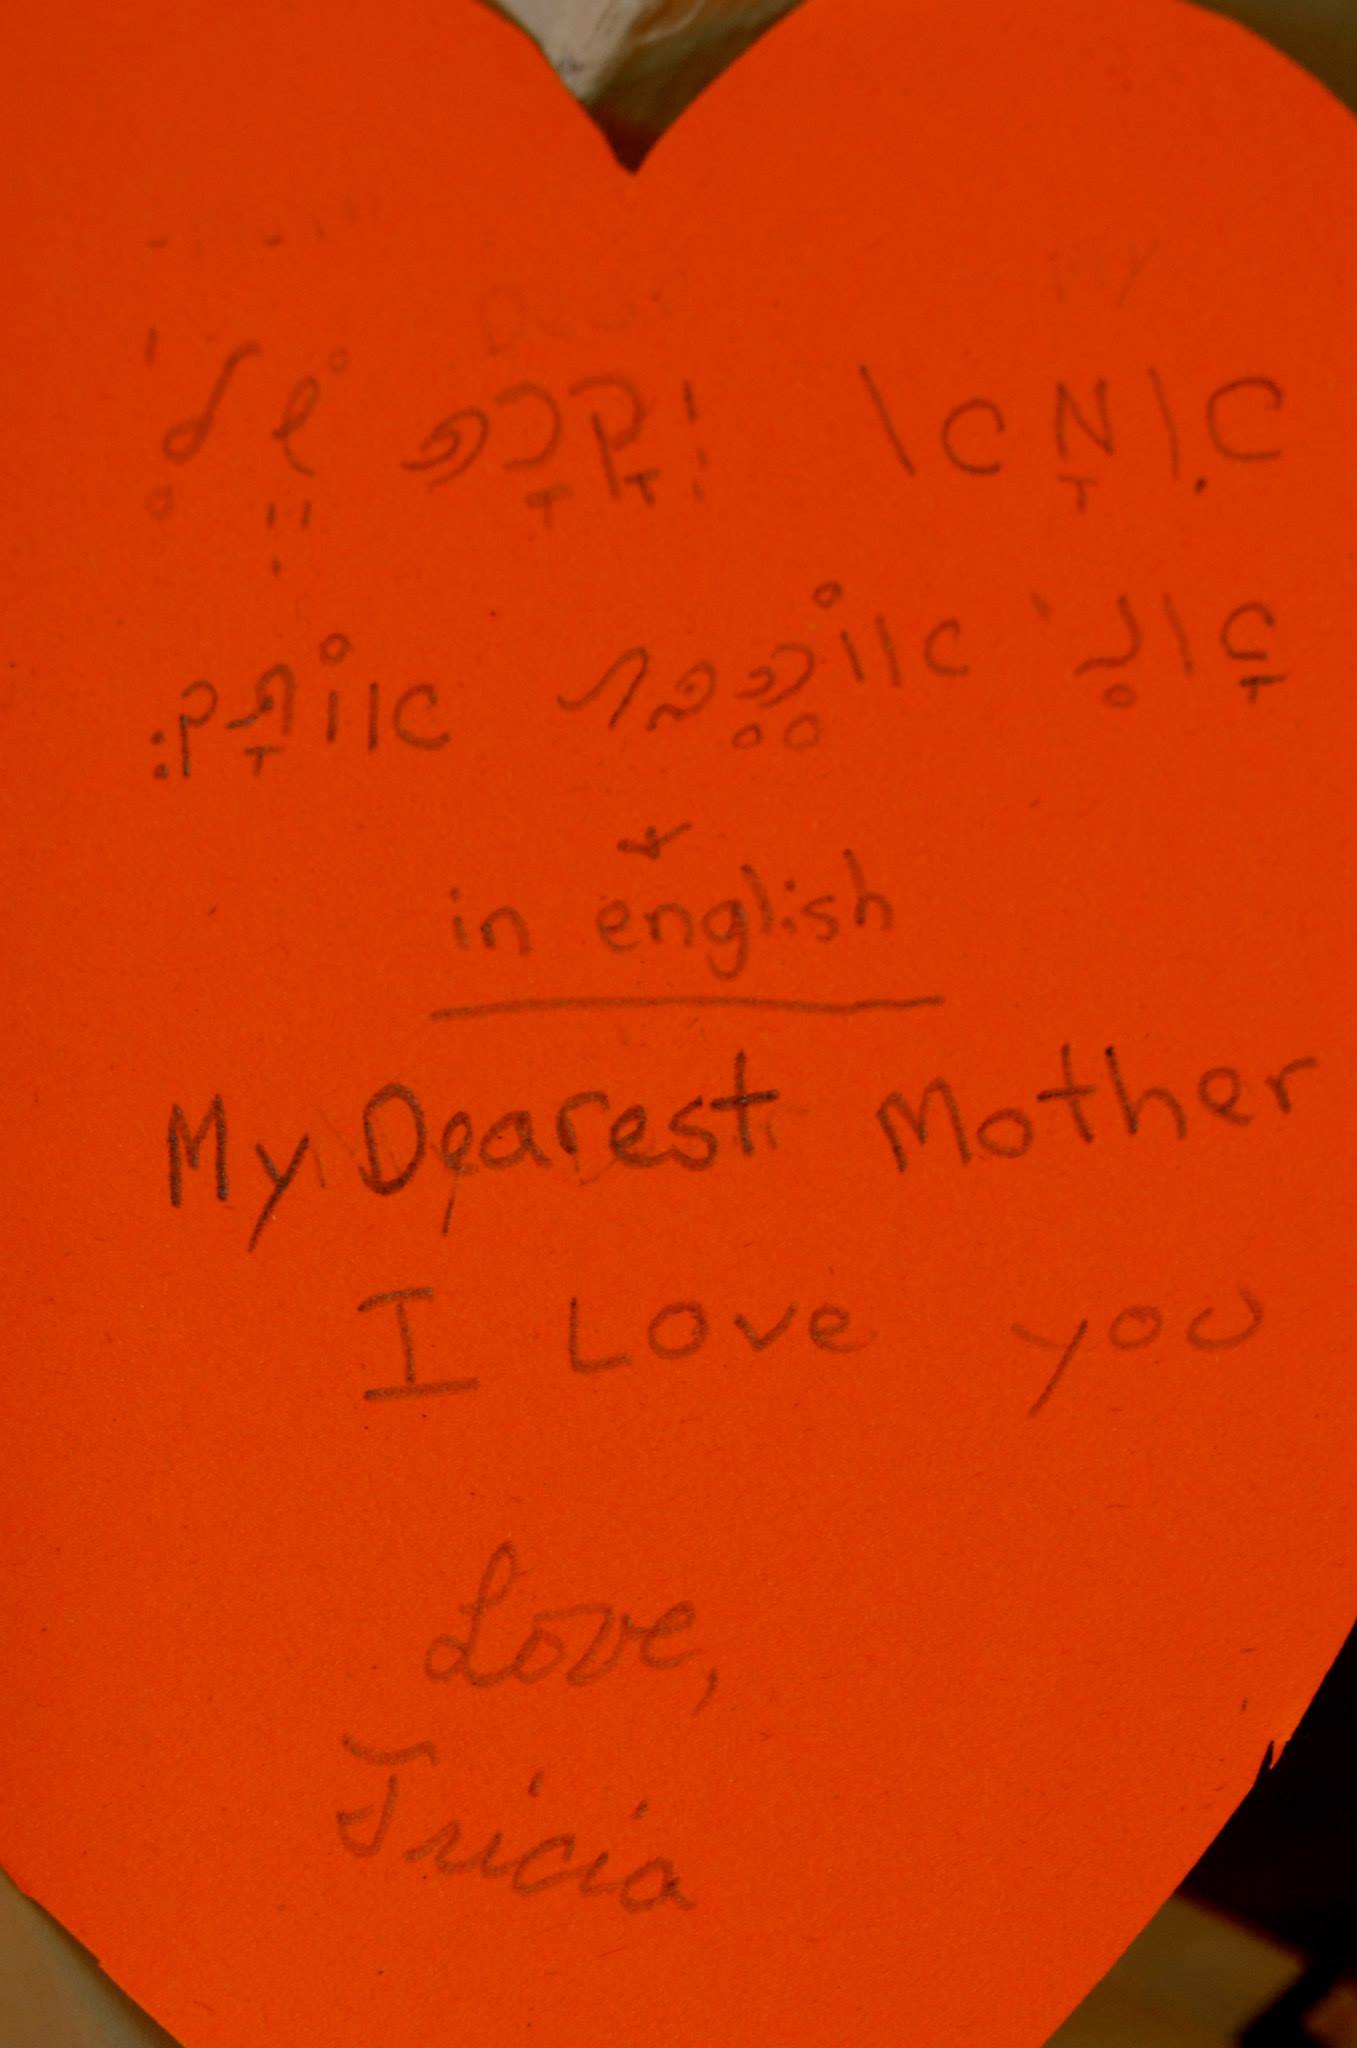 אִמָא יְקָרָה שֶׁלִי
אָנִי אוֹהֵבת אוֹתָךְ
in english
My Dearest Mother
I Love you
Love,
Tricia